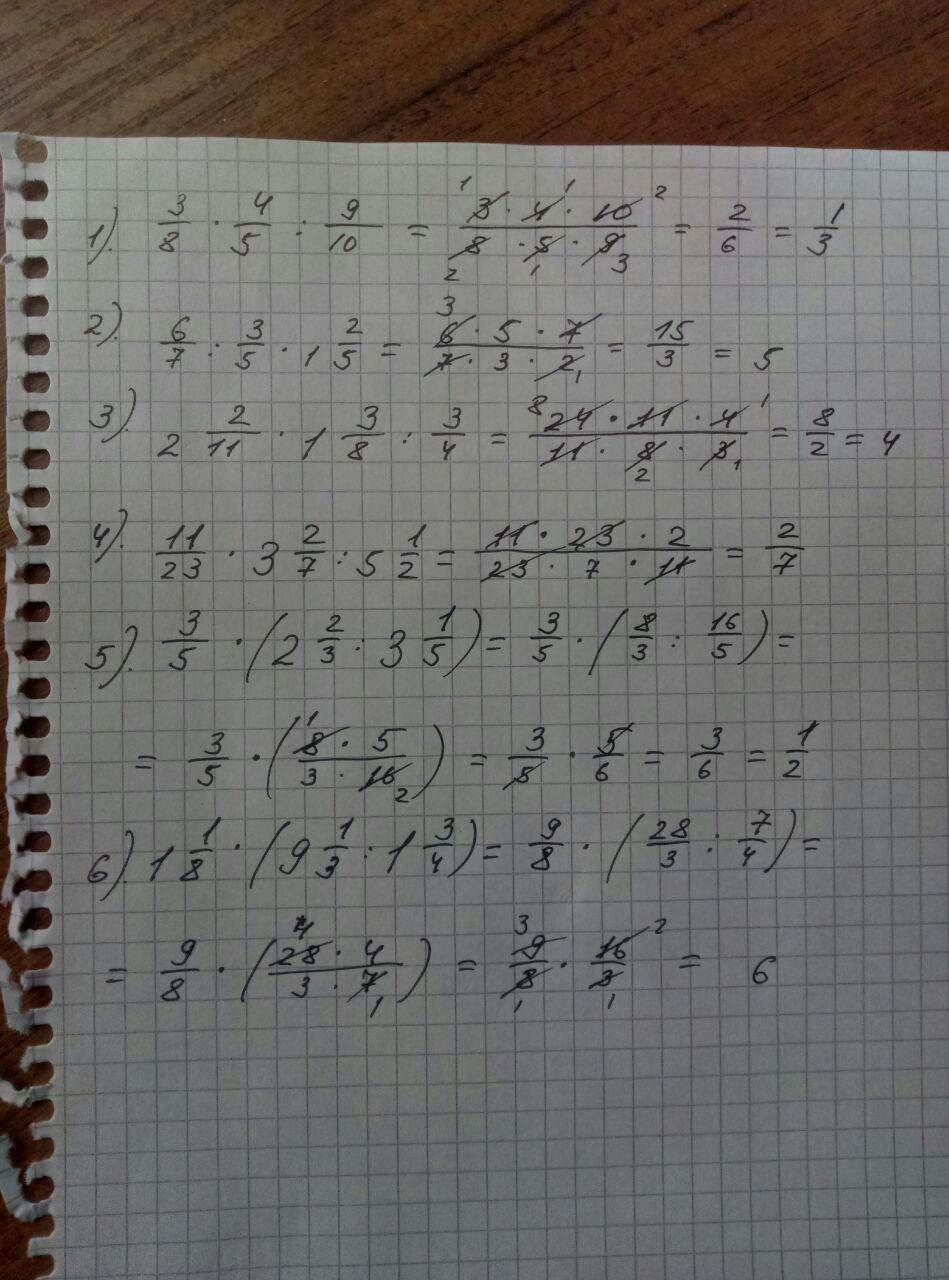 1). 3/8 · 4/5 : 9/10 = (3 · 4 · 10)/(8 · 5 · 9) = 2/6 = 1/3
2). 6/7 : 3/5 · 1 2/5 = (6 · 5 · 7)/(7 · 3 · 2) = 15/3 = 5
3). 2 2/11 · 1 3/8 : 3/4 = (24 · 11 · 4)/(11 · 8 · 3) = 8/2 = 4
4). 11/23 · 3 2/7 : 5 1/2 = (11 · 23 · 2)/(23 · 7 · 11) = 2/7
5). 3/5 · (2 2/3 : 3 1/5) = 3/5 · (8/3 : 16/5) =
= 3/5 · ((8 · 5)/(3 · 16)) = 3/5 · 5/6 = 3/6 = 1/2
6). 1 1/8 · (9 1/3 : 1 3/4) = 9/8 · (28/3 : 7/4) =
= 9/8 · ((28 · 4)/(3 · 7)) = 9/8 · 16/3 = 6